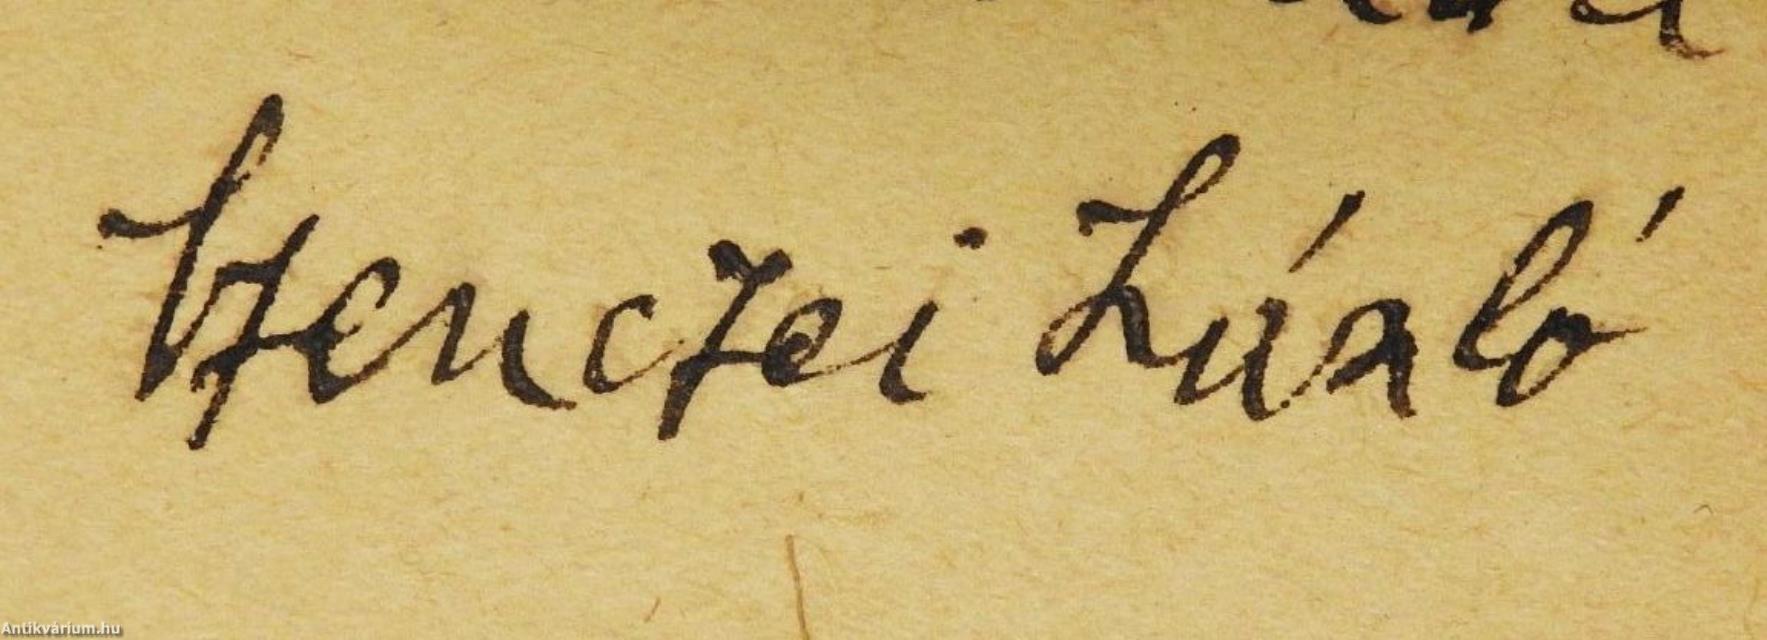 Szenczei László
Antikvárium.hu